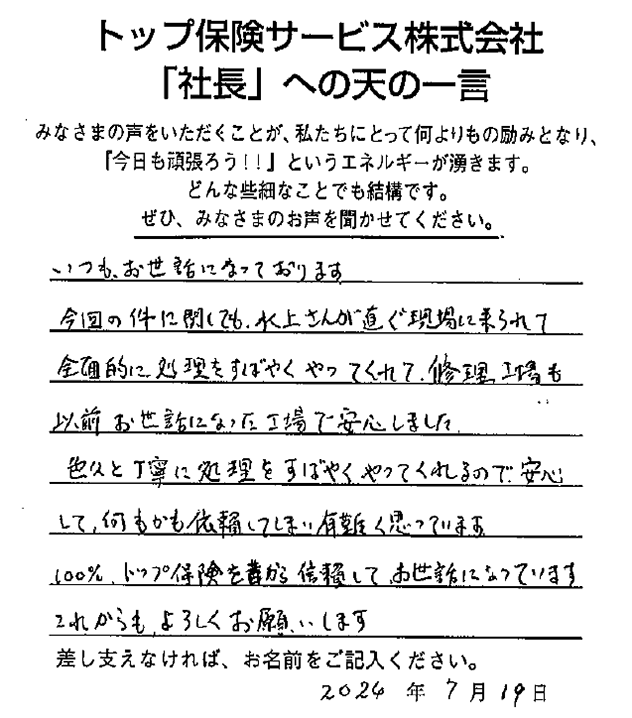 トップ保険サービス株式会社
「社長」への天の一言
みなさまの声をいただくことが、私たちにとって何よりもの励みとなり、
『今日も頑張ろう!!』というエネルギーが湧きます。
どんな些細なことでも結構です。
ぜひ、みなさまのお声を聞かせてください。
いつも、お世話になっております
今回の件に関しても、水上さんが直ぐ現場に来られて
全面的に処理をすばやくやってくれて、修理工場も
以前お世話になった工場で安心しました。
色々と丁寧に処理をすばやくやってくれるので安心
して、何もかも依頼してしまい有難く思っています
100%、トップ保険を昔から信頼して、お世話になっています
これからも、よろしくお願いします
差し支えなければ、お名前をご記入ください。
2024年7月19日